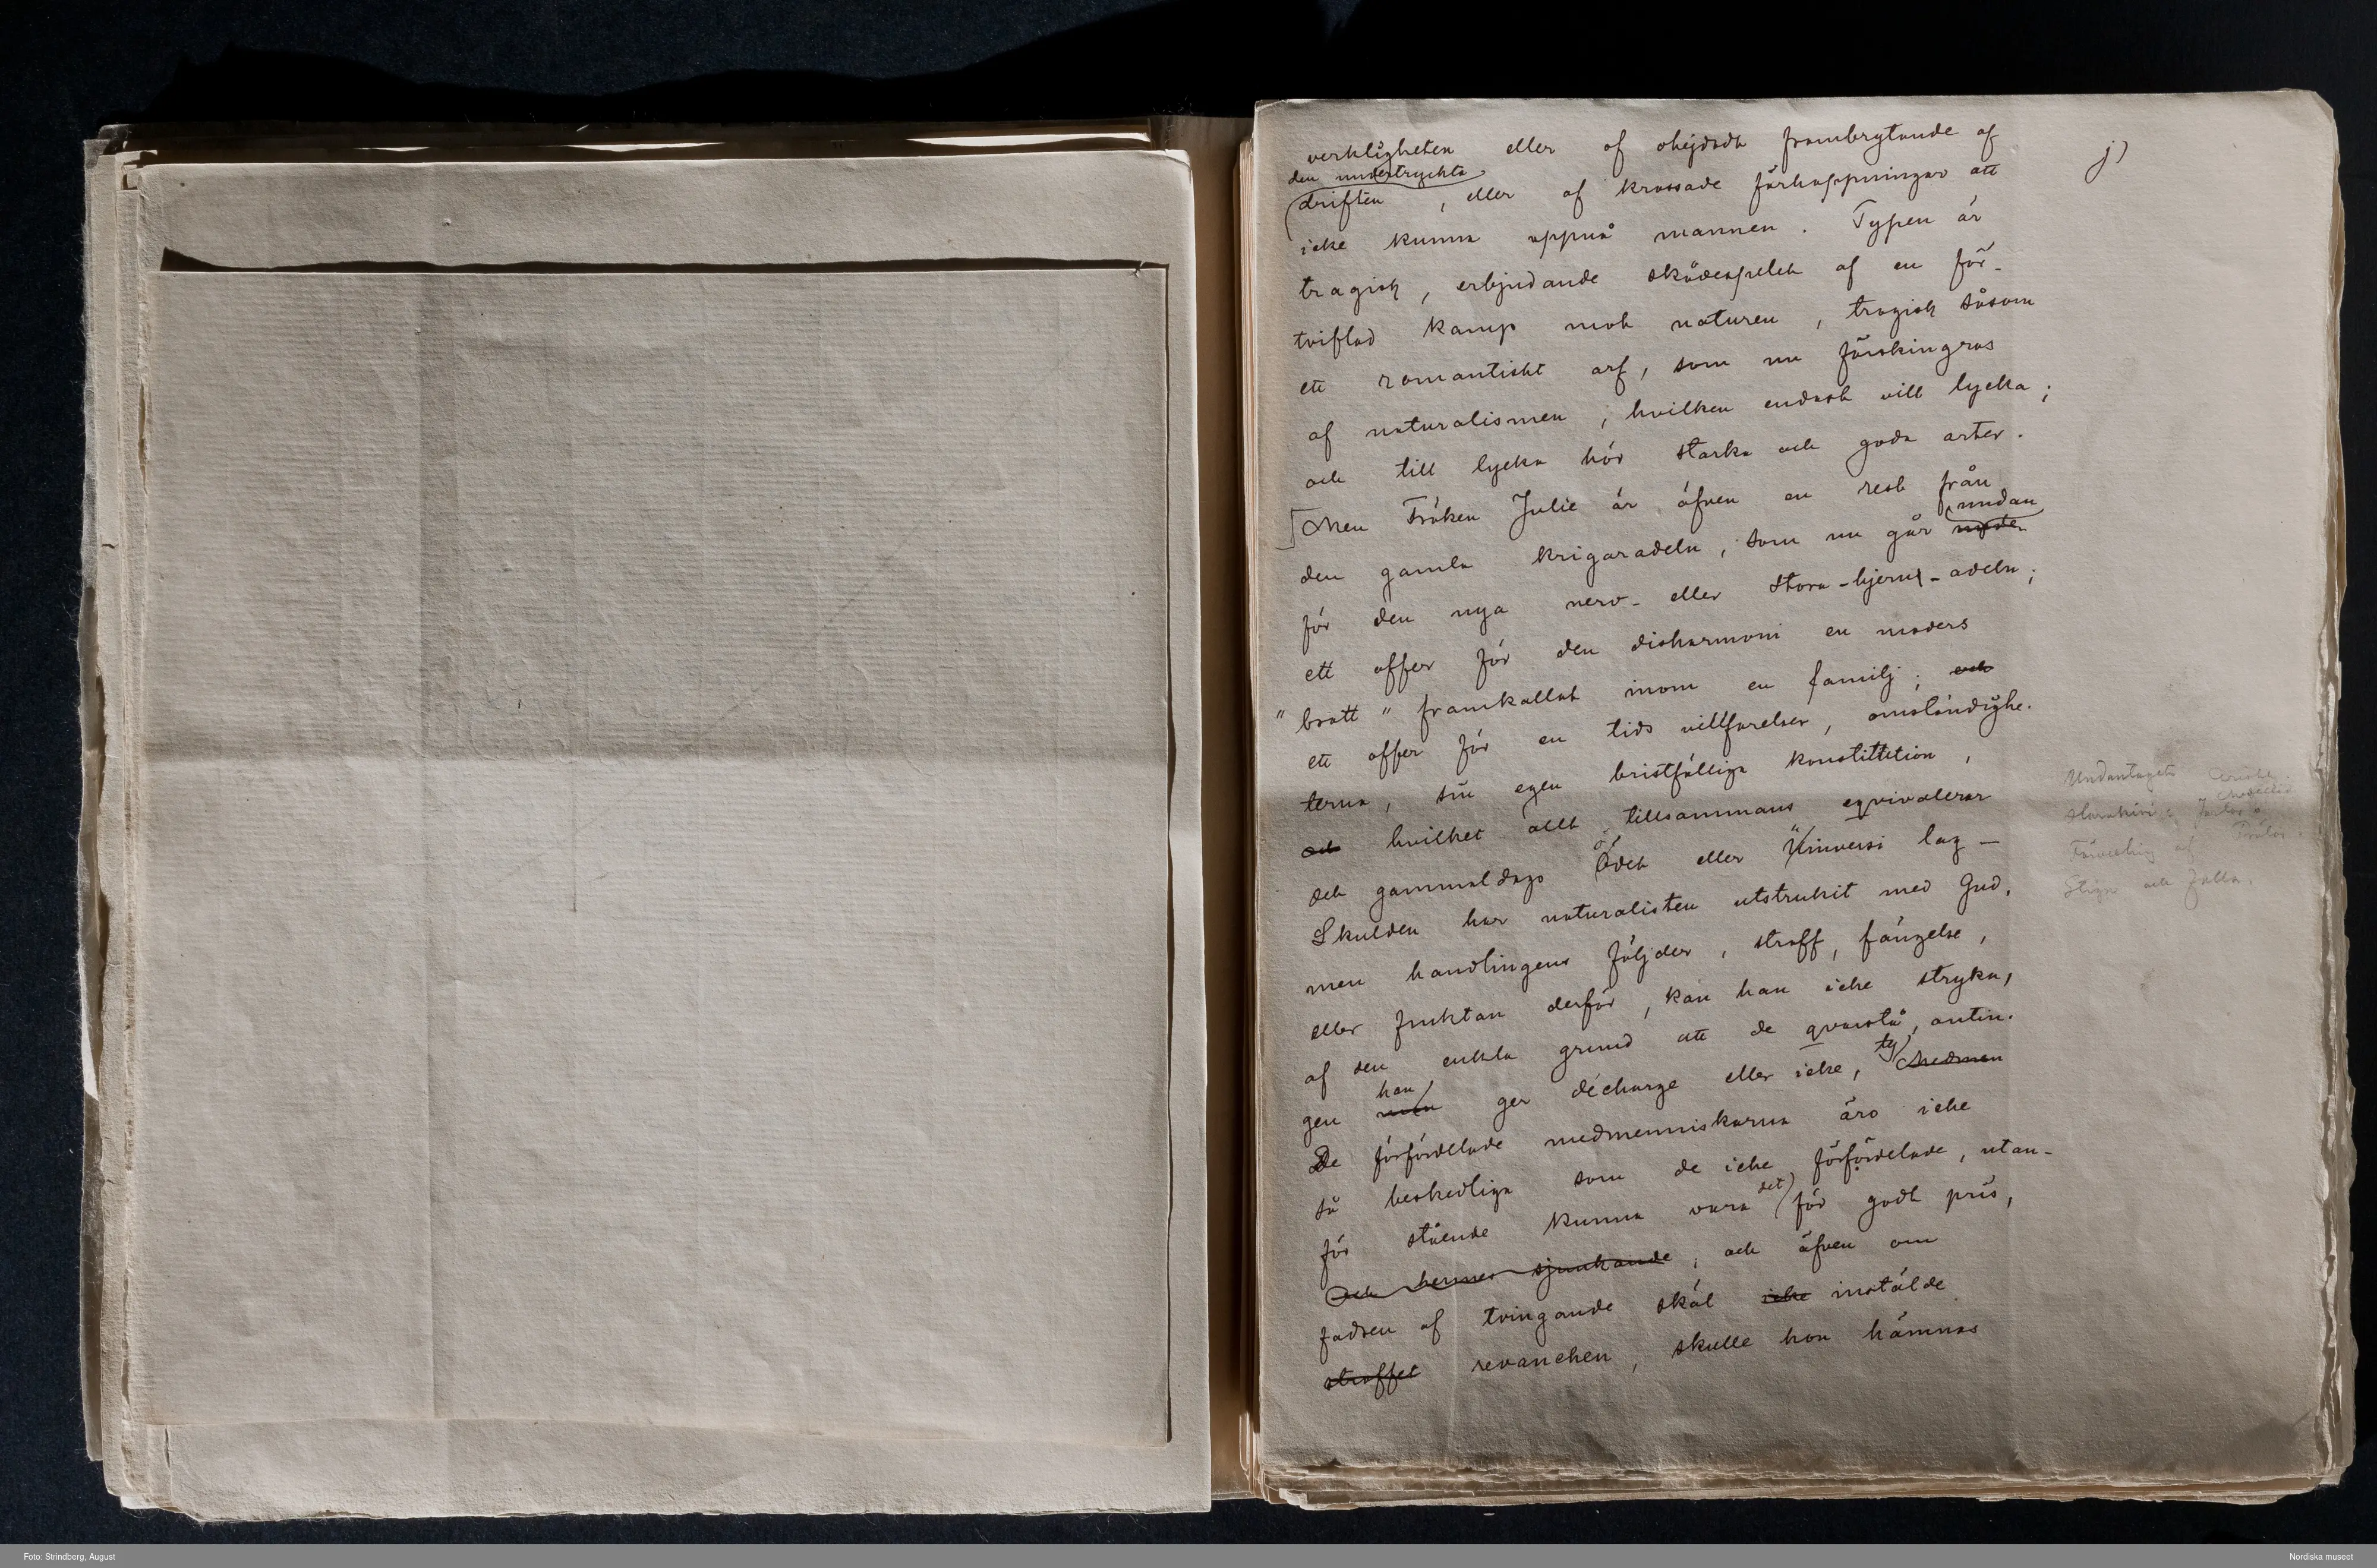 j)
verkligheten eller af ohejdadt frambrytande af
den undertryckta
driften, eller af krossade förhoppningar att
icke kunna uppnå mannen. Typen är
tragisk, erbjudande skådespelet af en för-
tviflad kamp mot naturen, tragisk såsom
ett romantiskt arf, som nu förskingras
af naturalismen, hvilken endast vill lycka;
och till lycka hör starka och goda arter.
Men Fröken Julie är äfven en rest från
undan
den gamla krigaradeln, som nu går
för den nya nerv- eller stora-hjern-adeln;
ett offer för den disharmoni en moders
"brott" framkallat inom en familj; och
ett offer för en tids villfarelser, omständighe-
terna, sin egen bristfälliga konstitution,
och hvilket allt tillsammans eqvivalerar
det gammaldags Ödet eller Universi lag –
Skulden har naturalisten utstrukit med Gud,
men handlingens följder, straff, fängelse,
eller fruktan derför, kan han icke stryka,
af den enkla grund att de qvarstå, antin-
han ty
gen man ger décharge eller icke, medmen
De förfördelade medmenniskorna äro icke
så beskedliga som de icke förfördelade, utan-
det
för stående kunna vara för godt pris,
och hennes sjunkande; och äfven om
fadren af tvingande skäl icke instälde
straffet revanchen, skulle hon hämnas
Undantaget
Stiga och falla.
Foto: Strindberg, August
Nordiska museet